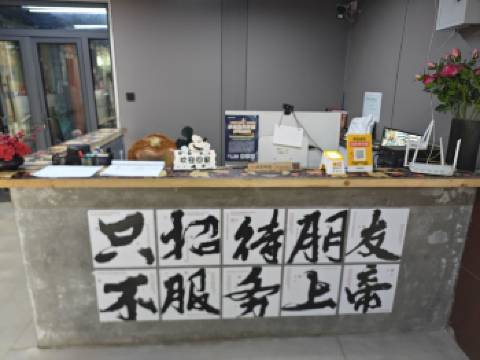 只招待朋友
不服务上帝